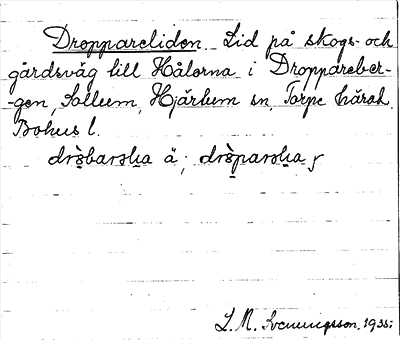 Droppareliden. Lid på skogs- och
gårdsväg till Hålorna i Droppareber-
-gen, Solleum, Hjärtum sn, Torpe härad.
Bohus l.
drò̱barəlia ä; drò̱parəlia y
L. M. Svenungsson. 1935;